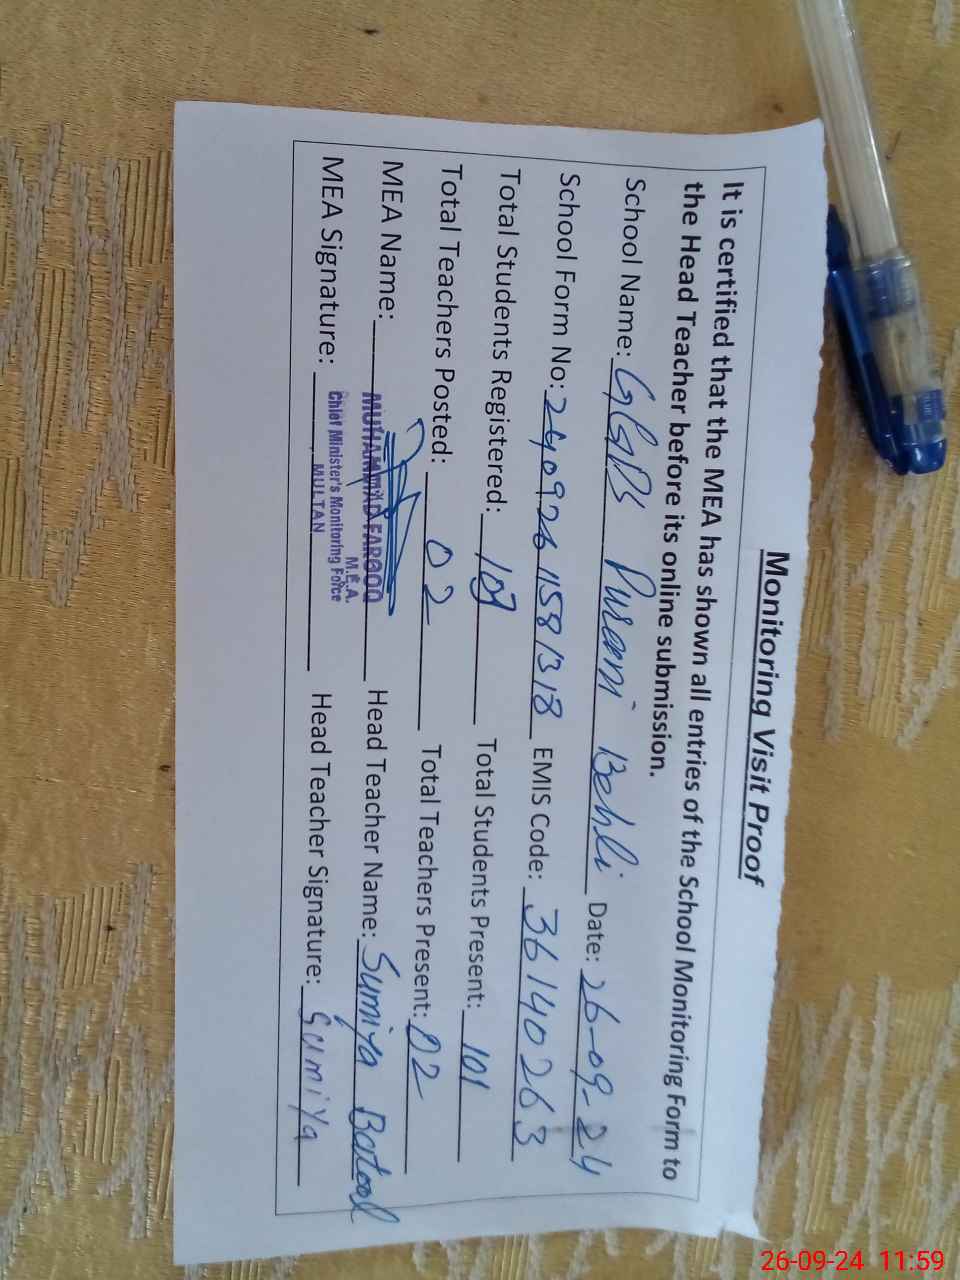 Monitoring Visit Proof
It is certified that the MEA has shown all entries of the School Monitoring Form to
the Head Teacher before its online submission.
School Name: GGPS Purani Behli Date: 26-09-24
School Form No: 240926 1158 1318 EMIS Code: 36140263
Total Students Registered: Total Students Present: 101
Total Teachers Posted: 02 Total Teachers Present: 02
MEA Name: MUHAMMAD FAROOQ Head Teacher Name: Sumiya Batool
M.E.A.
MEA Signature: Chief Minister's Monitoring Force Head Teacher Signature: Sumiya
MULTAN
BLUE
26-09-24 11:59